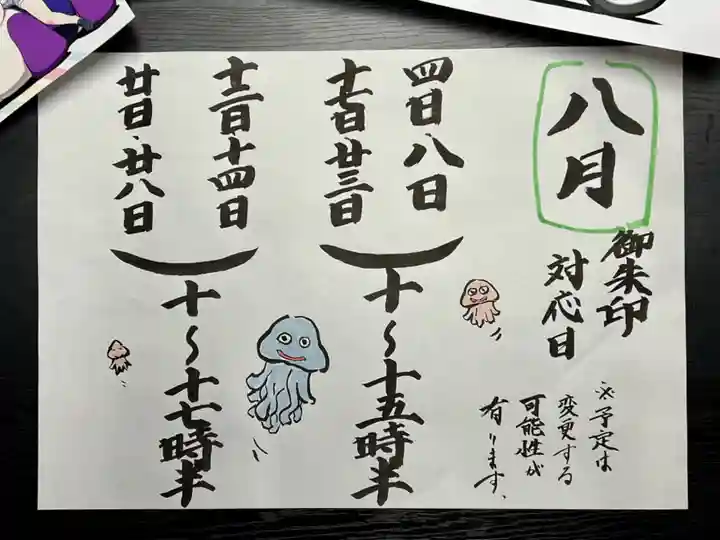 八月
御朱印
対応日
※予定は
変更する
可能性が
有ります。
四日・八日
十七日・廿三日
十〜十五時半
十二日・十四日
廿日・廿八日
十〜十七時半